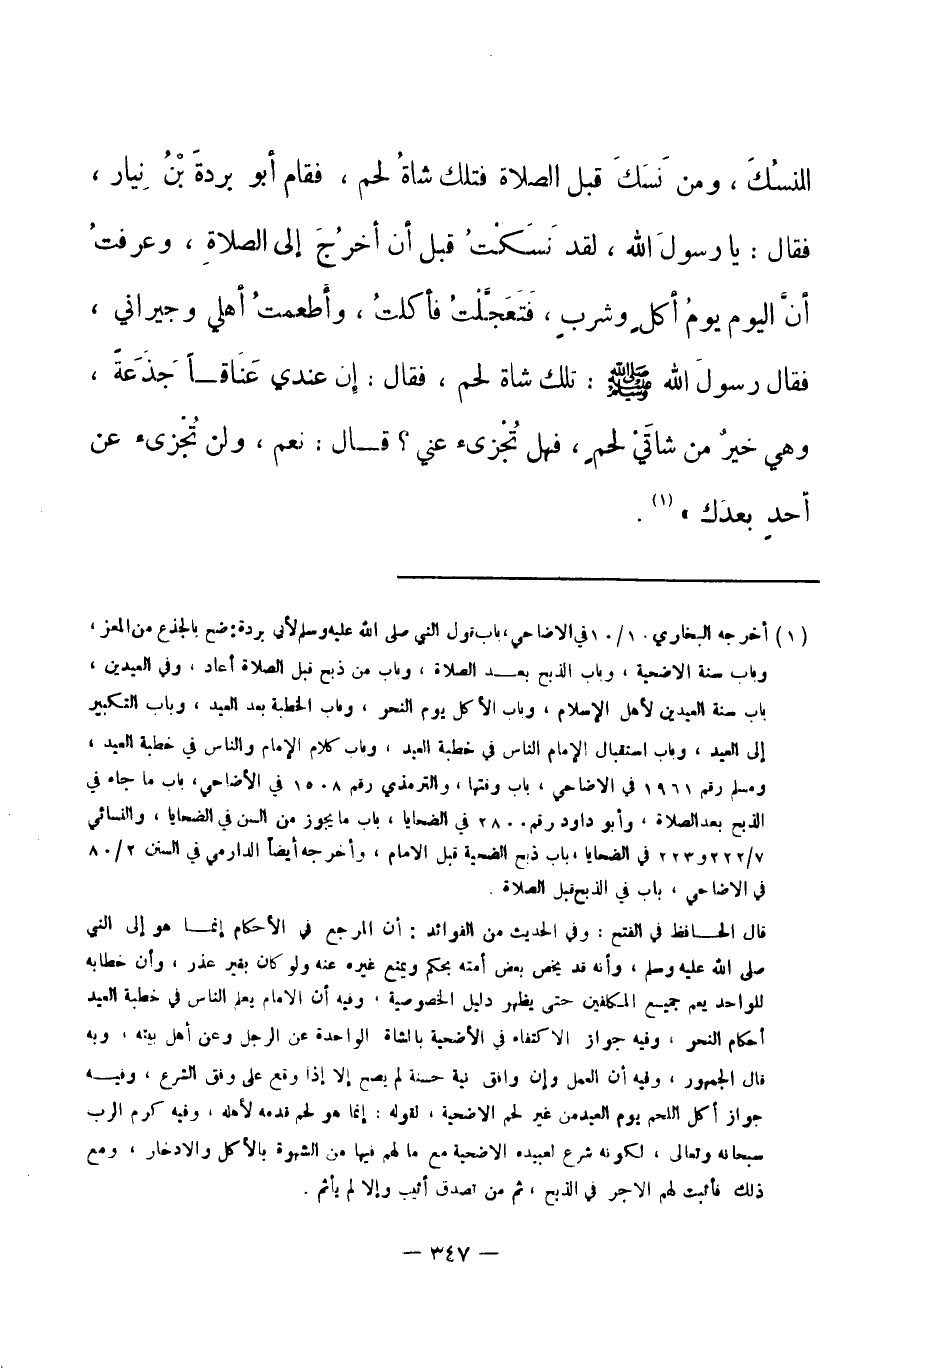 النسُكَ ، ومن نَسَكَ قبل الصلاة فتلك شاةُ لحم ، فقام أبو بردةَ بْنُ نِيار ،
فقال : يا رسولَ الله ، لقد نَسَكْتُ قبل أن أخرُجَ إلى الصلاةِ ، وعرفتُ
أنَّ اليوم يومُ أكلٍ وشربٍ ، فَتَعَجَّلْتُ فأكلتُ ، وأَطعمتُ أهلي وجيراني ،
فقال رسولَ الله ﷺ : تلك شاة لحم ، فقال : إن عندي عَنَاقـاً جَذَعةً ،
وهي خيرٌ من شاتَيْ لحمٍ ، فهل تُجْزىء عني ؟ قـــال : نعم ، ولن تُجْزىء عن
أحدٍ بعدَك » (١) .
(١) أخرجه البخاري ١٠/١٠ في الاضاحي ، باب قول النبي صلى الله عليه وسلم لأبي بردة : ضح بالجذع من المعز ،
وباب سنة الاضحية ، وباب الذبح بعـــد الصلاة ، وباب من ذبح قبل الصلاة أعاد ، وفي العيدين ،
باب سنة العيدين لأهل الإسلام ، وباب الأكل يوم النحر ، وباب الخطبة بعد العيد ، وباب التكبير
إلى العيد ، وباب استقبال الإمام الناس في خطبة العيد ، وباب كلام الإمام والناس في خطبة العيد ،
ومسلم رقم ١٩٦١ في الاضاحي ، باب وقتها ، والترمذي رقم ١٥٠٨ في الأضاحي ، باب ما جاء في
الذبح بعد الصلاة ، وأبو داود رقم ٢٨٠٠ في الضحايا ، باب ما يجوز من السن في الضحايا ، والنسائي
٢٢٢/٧ و ٢٢٣ في الضحايا ، باب ذبح الضحية قبل الامام ، وأخرجه أيضاً الدارمي في السنن ٨٠/٢
في الاضاحي ، باب في الذبح قبل الصلاة .
قال الحـــافظ في الفتح : وفي الحديث من الفوائد : أن المرجع في الأحكام إنمـــا هو إلى النبي
صلى الله عليه وسلم ، وأنه قد يخص بعض أمته بحكم ويمنع غيره عنه ولو كان بغير عذر ، وأن خطابه
للواحد يعم جميـع المكلفين حتى يظهر دليل الخصوصية ، وفيه أن الامام يعلم الناس في خطبة العيد
أحكام النحر ، وفيه جواز الاكتفاء في الأضحية بالشاة الواحدة عن الرجل وعن أهل بيته ، وبه
قال الجمهور ، وفيه أن العمل وإن وافق نية حسنة لم يصح إلا إذا وقع على وفق الشرع ، وفيـــه
جواز أكل اللحم يوم العيد من غير لحم الاضحية ، لقوله : إنما هو لحم قدمه لأهله ، وفيه كرم الرب
سبحانه وتعالى ، لكونه شرع لعبيده الاضحية مع ما لهم فيها من الشهوة بالأكل والادخار ، ومع
ذلك فأثبت لهم الاجر في الذبح ، ثم من تصدق أثيب وإلا لم يأثم .
— ٣٤٧ —